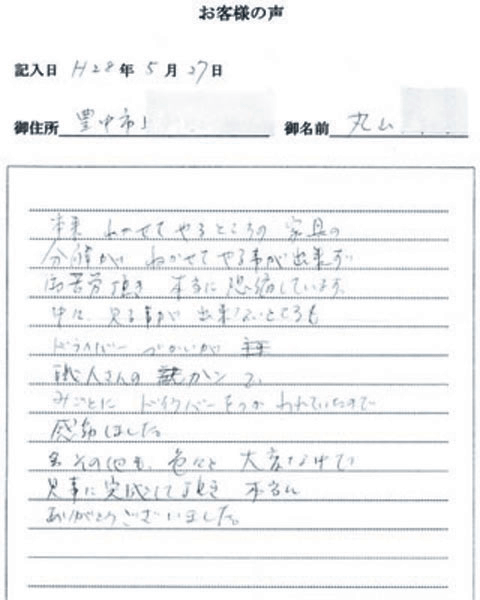 お客様の声
記入日 H28年 5月 27日
御住所 豊中市 御名前 丸山
本来 ねかせて やるところの 家具の
分解が ねかせて やる事が出来ず
御苦労頂き 本当に 恐縮しています。
中に、見る事が 出来ないところも
ドライバー づかいが
職人さんの カンで、
みごとに ドライバーをつかわれていたので
感動しました。
その他も、色々と 大変な中で
見事に完成して頂き 本当に
ありがとうございました。